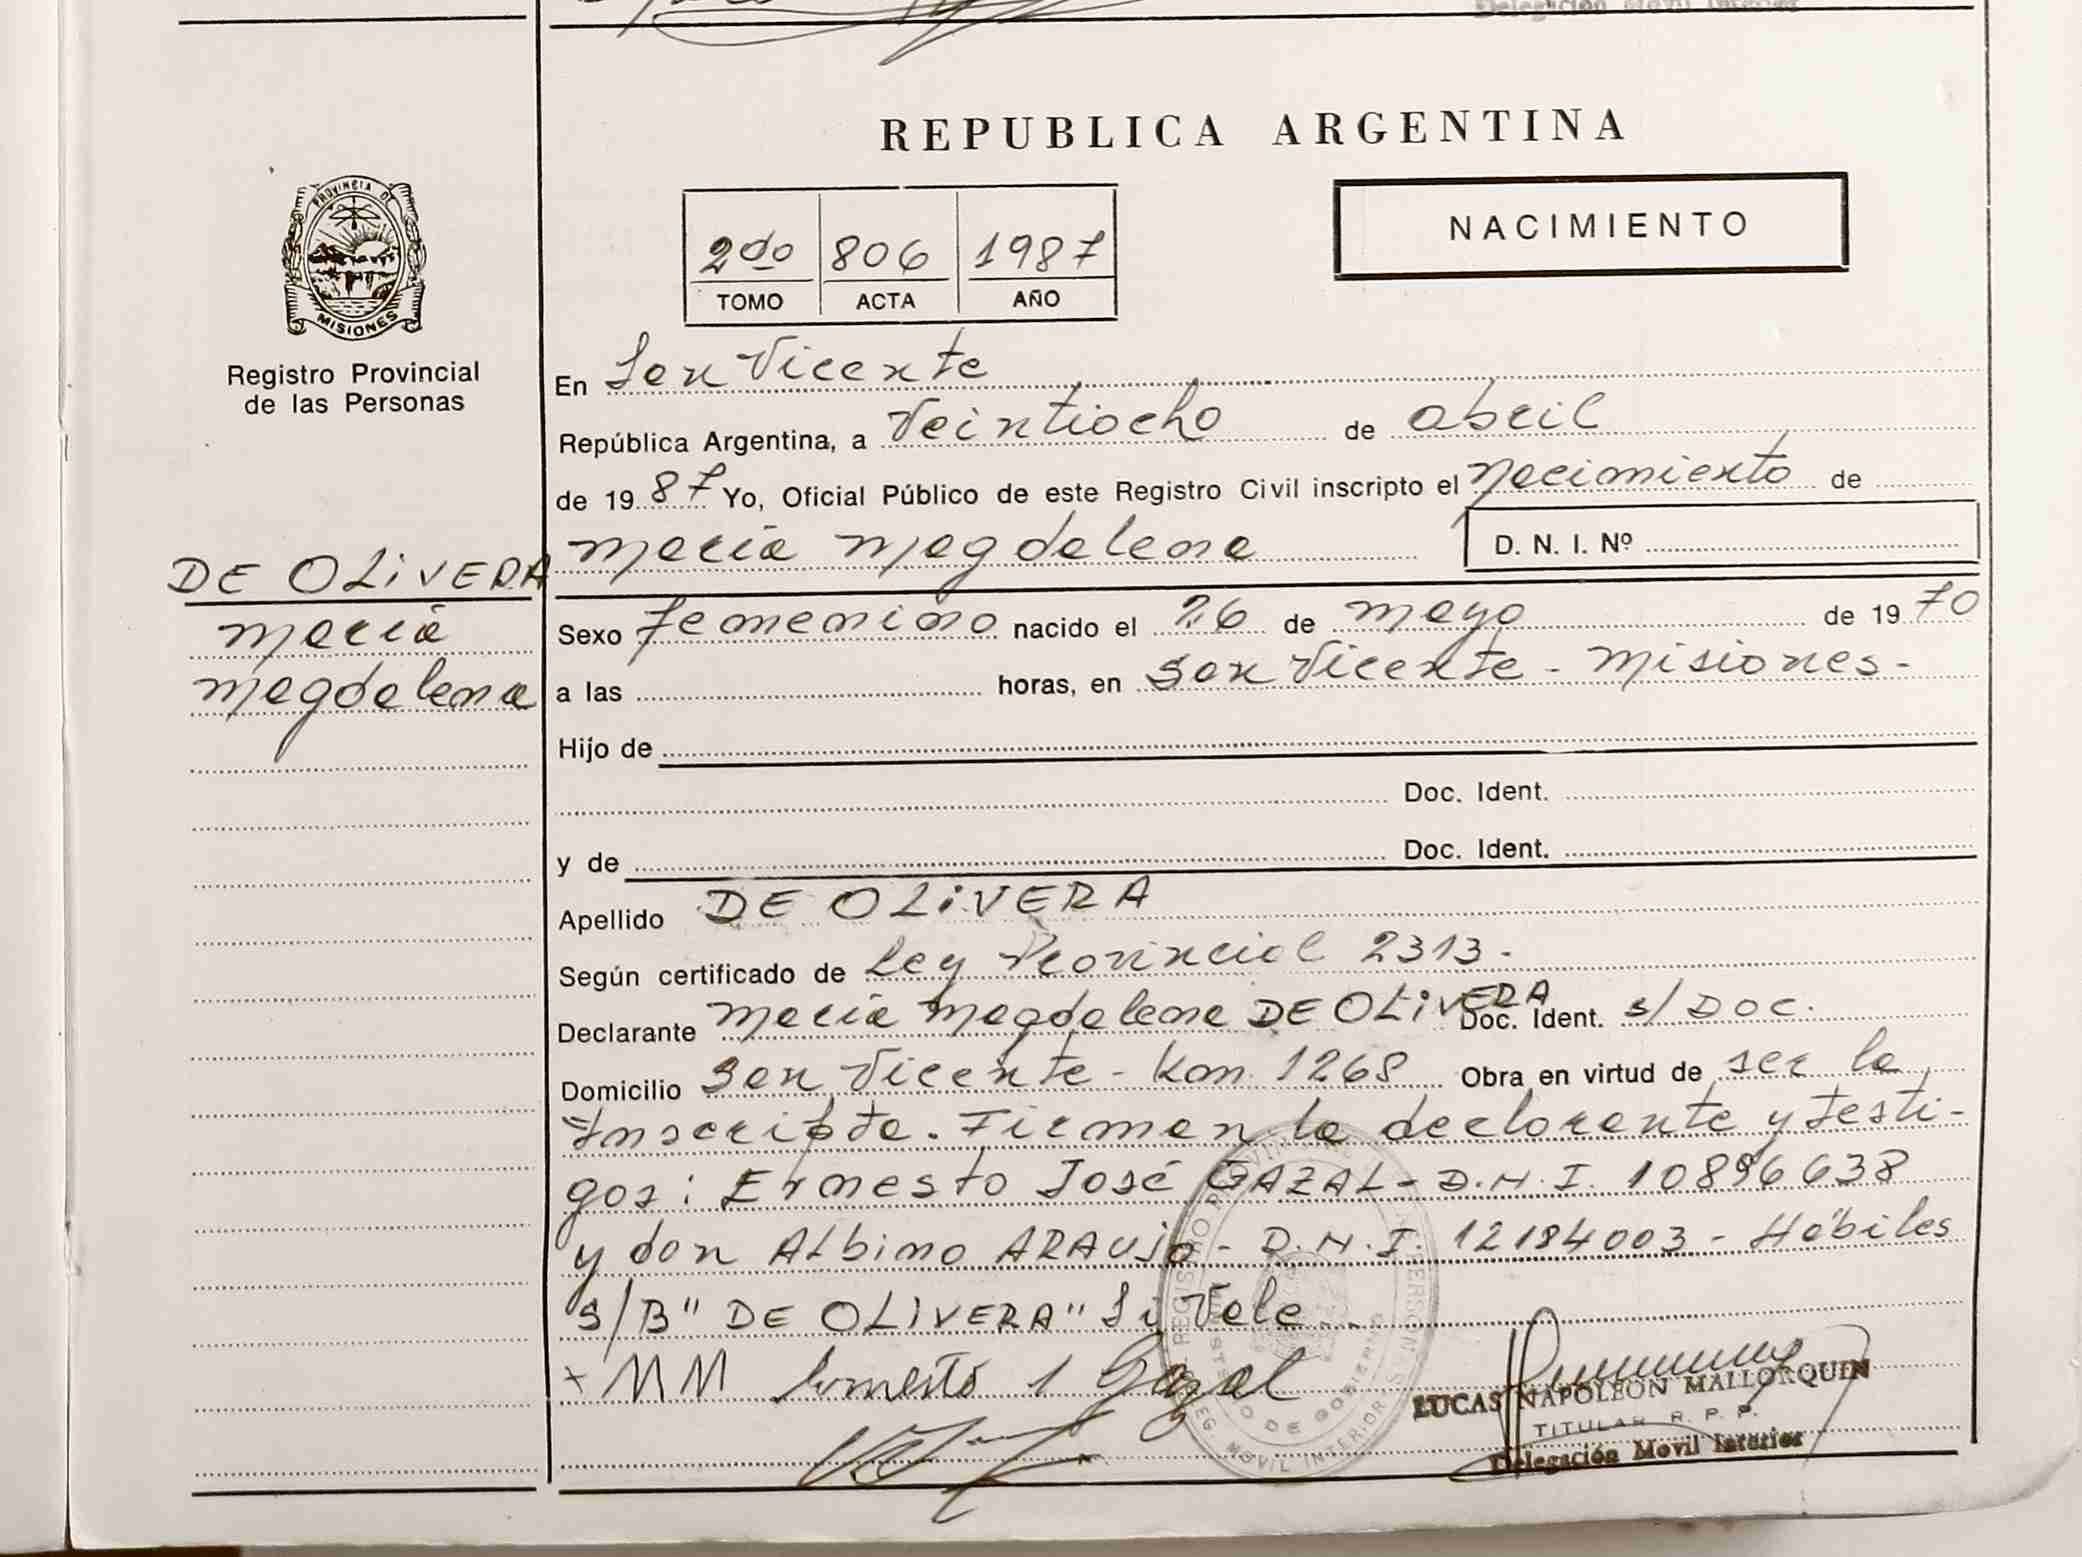 Delegación Movil Interior
REPUBLICA ARGENTINA
PROVINCIA DE
MISIONES
Registro Provincial
de las Personas
2do 806 1987
TOMO ACTA AÑO
NACIMIENTO
En San Vicente
República Argentina, a Veintiocho de abril
de 19 87 Yo, Oficial Público de este Registro Civil inscripto el Nacimiento de
María Magdalena D. N. I. Nº
DE OLIVERA
María
Magdalena
Sexo femenino nacido el 26 de mayo de 19 70
a las horas, en San Vicente - Misiones -
Hijo de
Doc. Ident.
y de Doc. Ident.
Apellido DE OLIVERA
Según certificado de Ley Provincial 2313 -
Declarante María Magdalena DE OLIVERA Doc. Ident. s/DOC.
Domicilio San Vicente - Km. 1268 Obra en virtud de ser la
Inscripta. Firman la declarante y testi-
gos: Ernesto José GAZAL - D.N.I. 10896638
y don ALbino ARAUJO - D.N.I. 12184003 - Hábiles
S/B" DE OLIVERA" Si Vale
x MM Ernesto J Gazal
REGISTRO PROVINCIAL DE LAS PERSONAS
MINISTERIO DE GOBIERNO
DELEG. MOVIL INTERIOR
LUCAS NAPOLEON MALLORQUIN
TITULAR R. P. P.
Delegación Movil Interior